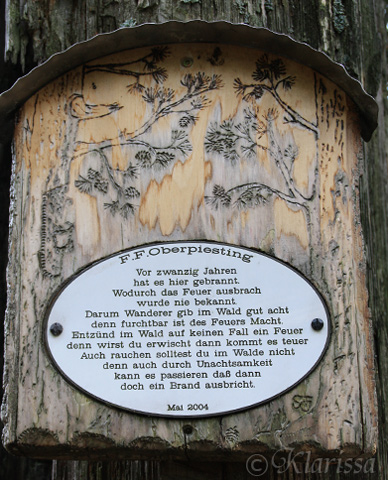 F.F.Oberpiesting
Vor zwanzig Jahren
hat es hier gebrannt.
Wodurch das Feuer ausbrach
wurde nie bekannt.
Darum Wanderer gib im Wald gut acht
denn furchtbar ist des Feuers Macht.
Entzünd im Wald auf keinen Fall ein Feuer
denn wirst du erwischt dann kommt es teuer
Auch rauchen solltest du im Walde nicht
denn auch durch Unachtsamkeit
kann es passieren daß dann
doch ein Brand ausbricht.
Mai 2004
© Klarissa